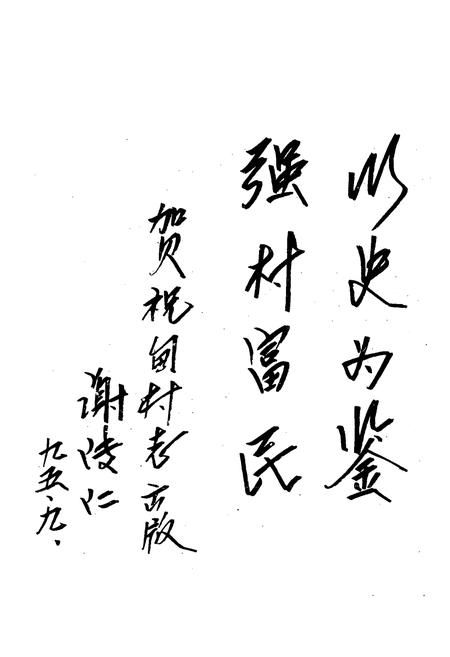 以史为鉴
强村富民
贺祝甸村志出版
谢陵仁
九五.九.